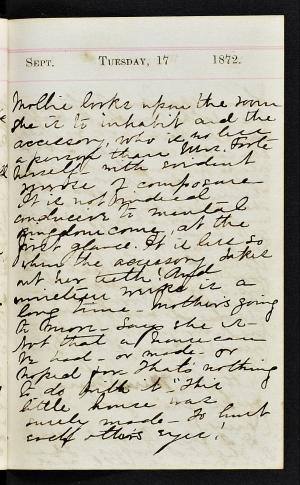 Sept. Tuesday, 17 1872.
Mollie looks upon the room
she is to inhabit and the
accessory, who is no less
a person than Mrs. Foote
herself with evident
of composure
It is not
conducive to mental
kingdom come, at the
first glance. It is less so
when the accessory takes
out her teeth! And
nineteen is a
long time. Mother's going
to move - says she is -
Not that a house can
be had - or made - or
hoped for. That's nothing
to do with it - "This
little house was
surely made - to hurt
each other's eyes,"